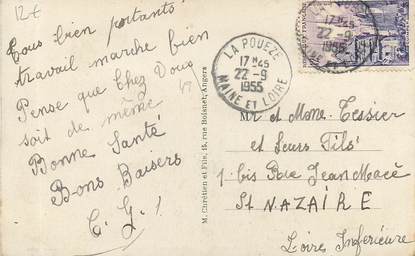 12€
Tous bien portants
travail marche bien
Pense que chez Vous
soit de même
Bonne Santé
Bons Baisers
C. G. !
M. Chrétien et Fils, 15, rue Boisnet, Angers
LA POUEZE
17H45
22-9
1955
MAINE ET LOIRE
17H45
22-9
1955
Mr et Mme Tessier
et Leurs Fils
1 bis Rue Jean Macé
St NAZAIRE
Loire Inférieure